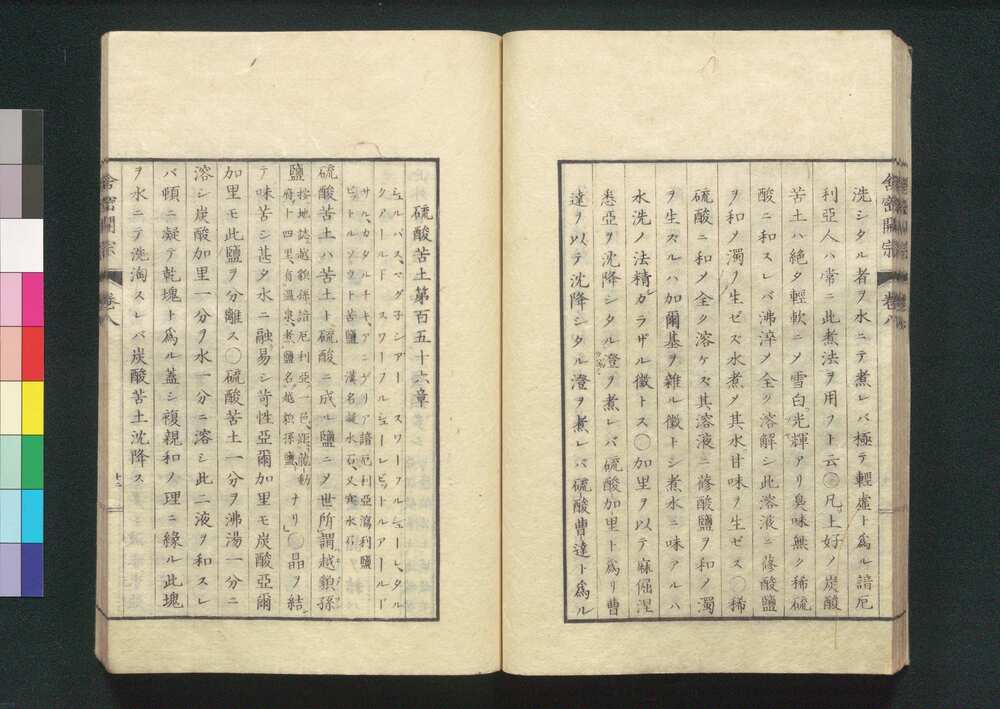 洗シタル者ヲ水ニテ煮レバ極テ輕虛ト爲ル諳厄
利亞人ハ常ニ此煮法ヲ用フト云○凡上好ノ炭酸
苦土ハ絶タ輕軟ニノ雪白光輝アリ臭味無ク稀硫
酸ニ和スレバ沸淬メ全ク溶解シ此溶液ニ蓚酸鹽
ヲ和メ濁ヲ生ゼズ水煮メ其水甘味ヲ生ゼズ○稀
硫酸ニ和メ全ク溶ケズ其溶液ニ蓚酸鹽ヲ和メ濁
ヲ生ズルハ加爾基ヲ雜ル徴トシ煮水ニ味アルハ
水洗ノ法精カラザル徴トス○加里ヲ以テ麻倔涅
悉亞ヲ沈降シタル澄ヲ煮レバ硫酸加里ト爲リ曹
達ヲ以テ沈降シタル澄ヲ煮レバ硫酸曹達ト爲ル
舍密開宗 卷八
硫酸苦土第百五十六章
シュルパス、マグ子シアー スワーフルシュールビッタル
クアールド スワーフルシューレビットルアアールド
サル、カタルチキ、アニグリア 諳厄利亞瀉利鹽
ビットルソウト 苦鹽 漢名凝水石、又寒水石
硫酸苦土ハ苦土ト硫酸ニ成ル鹽ニメ世所謂越貌孫
鹽 按地誌越貌孫諳厄利亞ノ一邑、距龍動
府ト四里、有温泉、煮鹽名越貌孫鹽、ナリ○晶ヲ結
テ味苦シ甚タ水ニ融易シ苛性亞爾加里モ炭酸亞爾
加里モ此鹽ヲ分離ス○硫酸苦土一分ヲ沸湯一分ニ
溶シ炭酸加里一分ヲ水一分ニ溶シ此二液ヲ和スレ
バ頓ニ凝テ乾塊ト爲ル蓋シ複親和ノ理ニ緣ル此塊
ヲ水ニテ洗淘スレバ炭酸苦土沈降ス
舍密開宗 卷八
十二